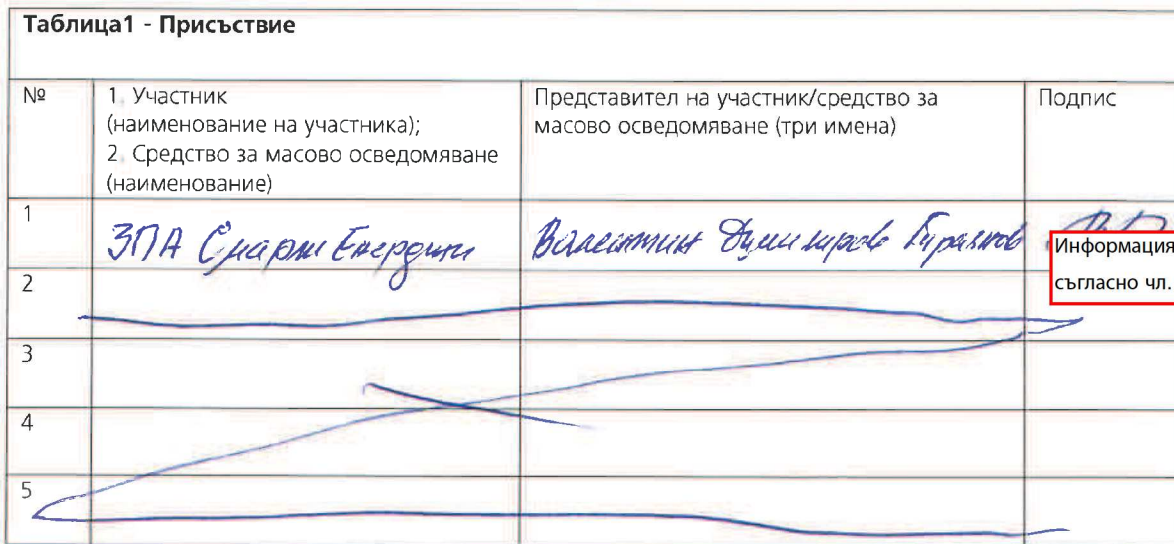 Таблица1 - Присъствие
№
1. Участник
(наименование на участника);
2. Средство за масово осведомяване
(наименование)
Представител на участник/средство за
масово осведомяване (три имена)
Подпис
1
ЗПА Смарт Енерджи
Валентин Димитров
Информация
съгласно чл.
2
3
4
5